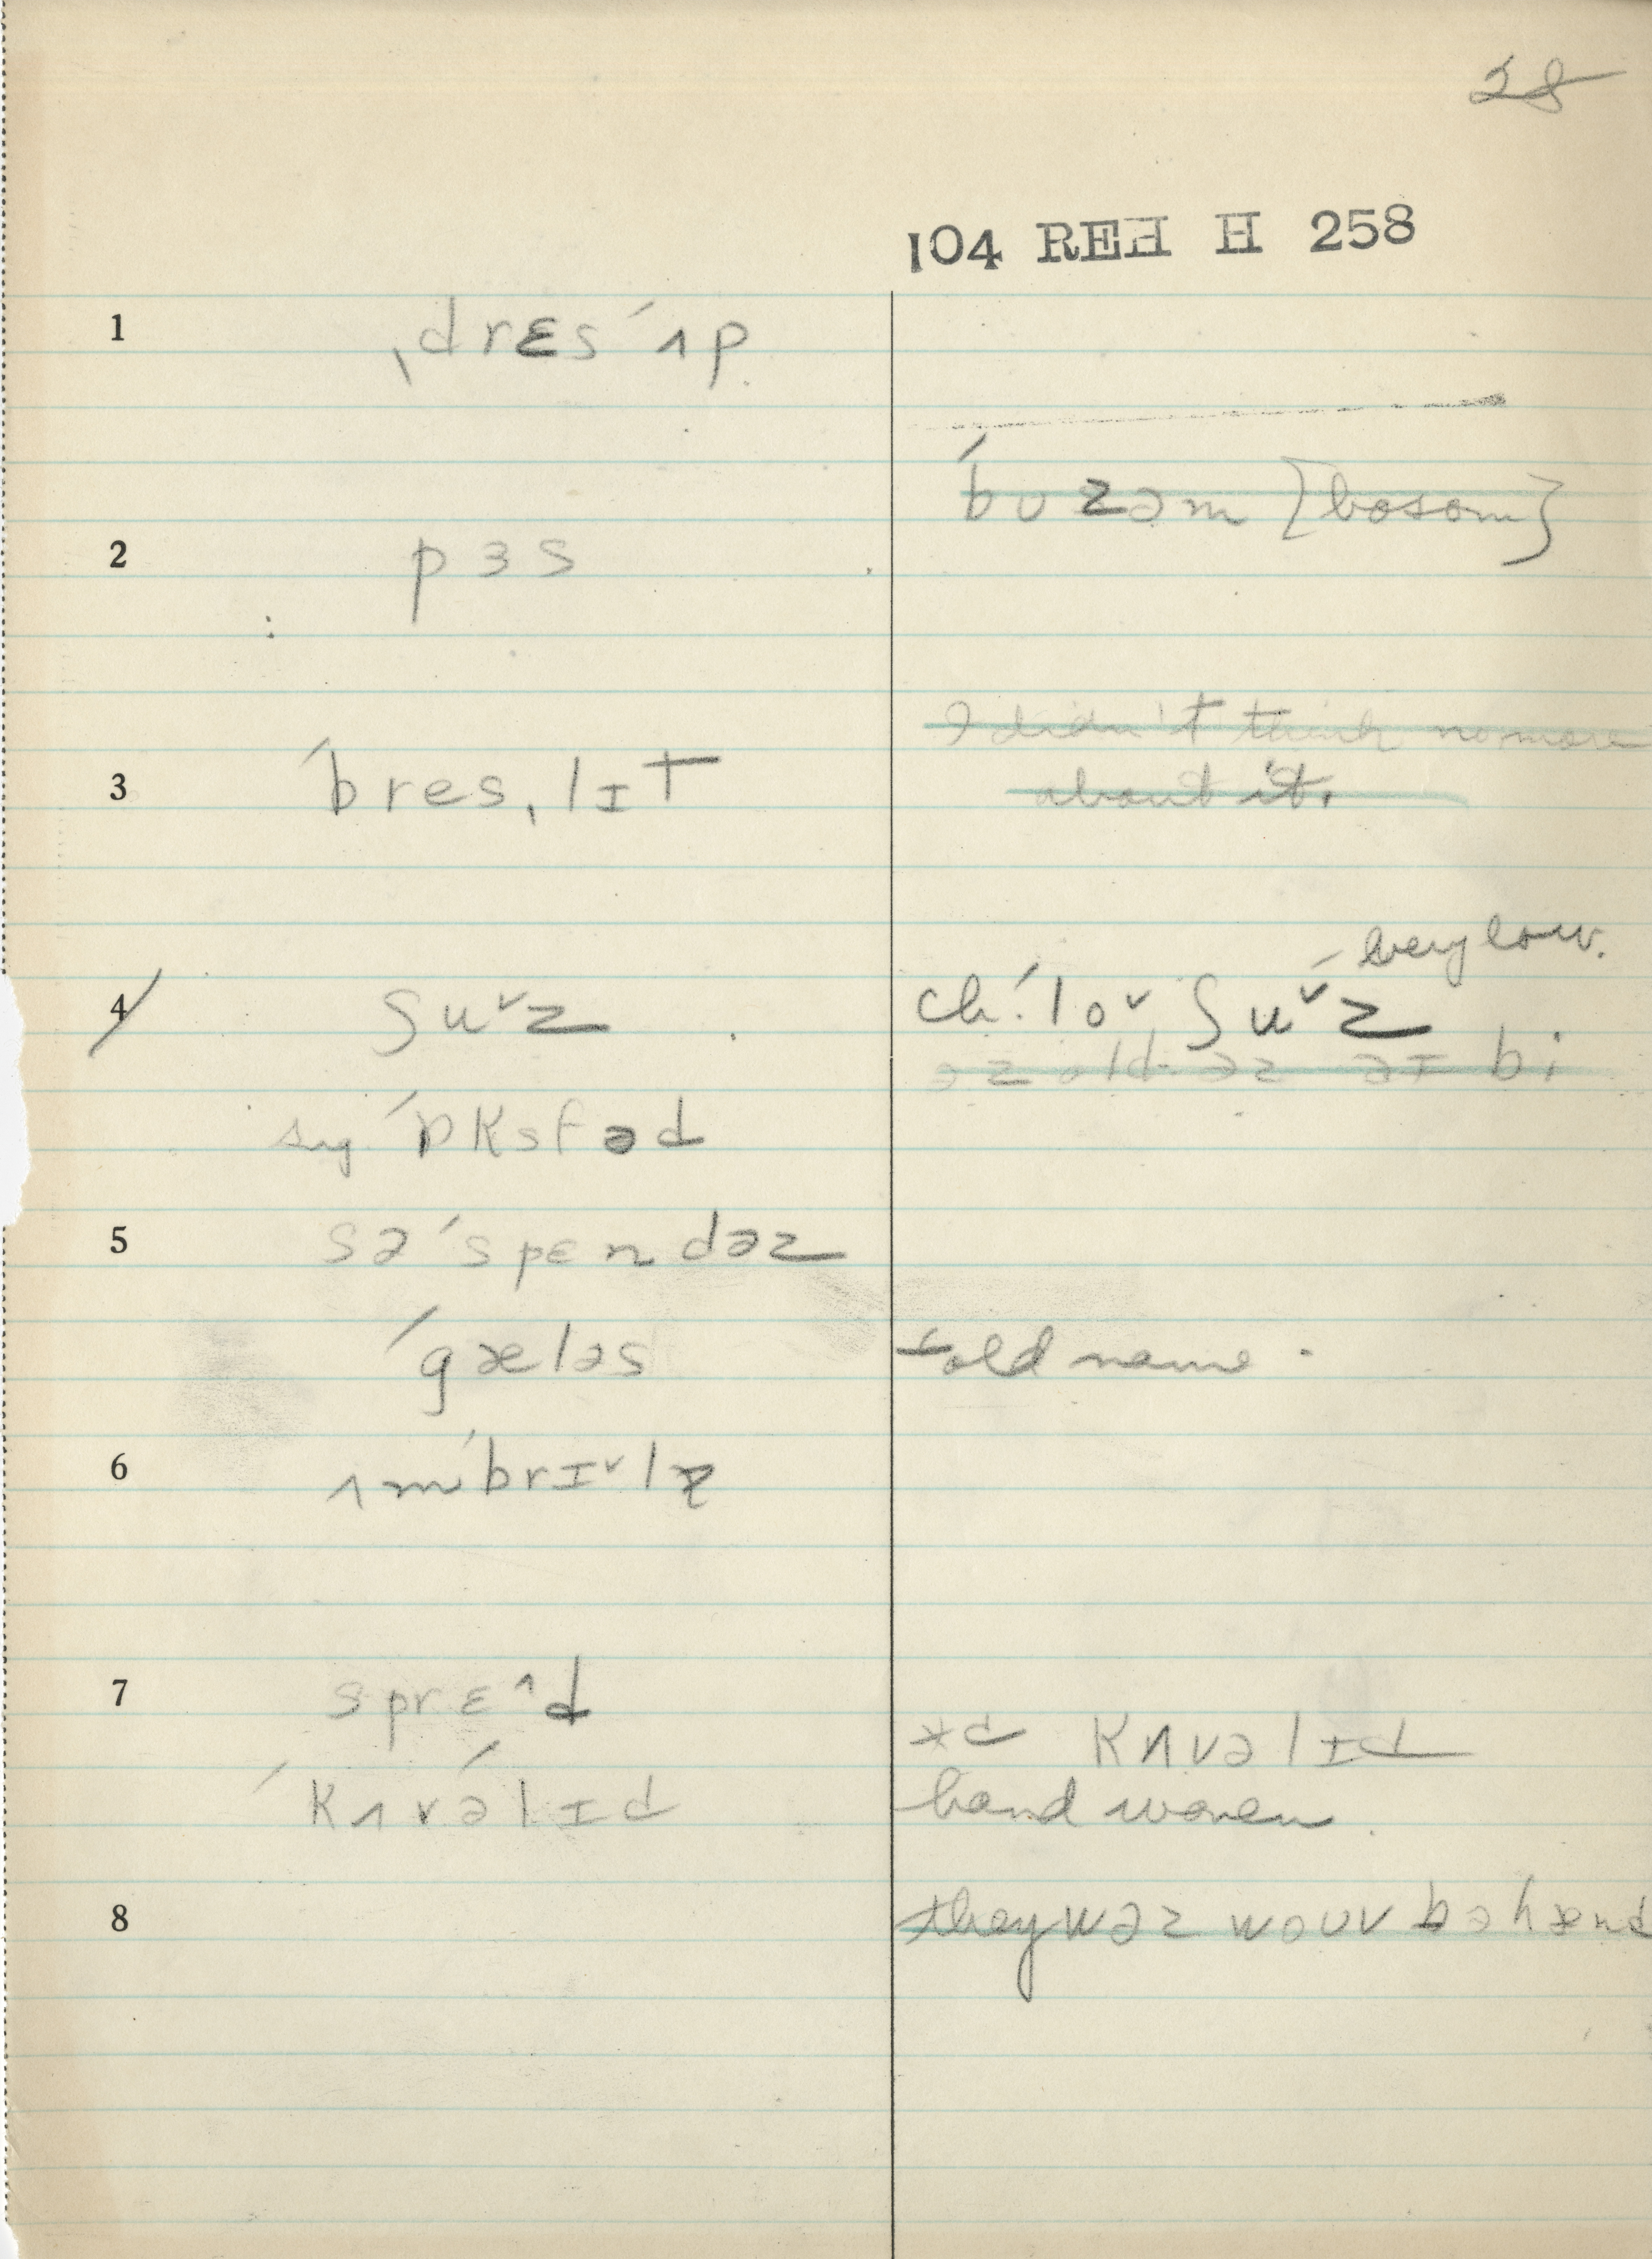 28
104 REH H 258
1 ˌdrɛsˈʌp
ˈbʊzəm {bosom}
2 pɜs
I didn't think no more
about it.
3 ˈbresˌlɪt
very low.
4 ʃuˇz ch. ˈloˇˌʃuˇz
əz old əz əɪ bi
ˈɒksfəd
5 səˈspɛndəz
ˈgæləs ← old name
6 ʌmˈbrɪˇlə
7 sprɛ^d
*d kʌvəlɪd
ˈkʌvəˈlɪd hand woven
8 they wəz wouv bə hænd